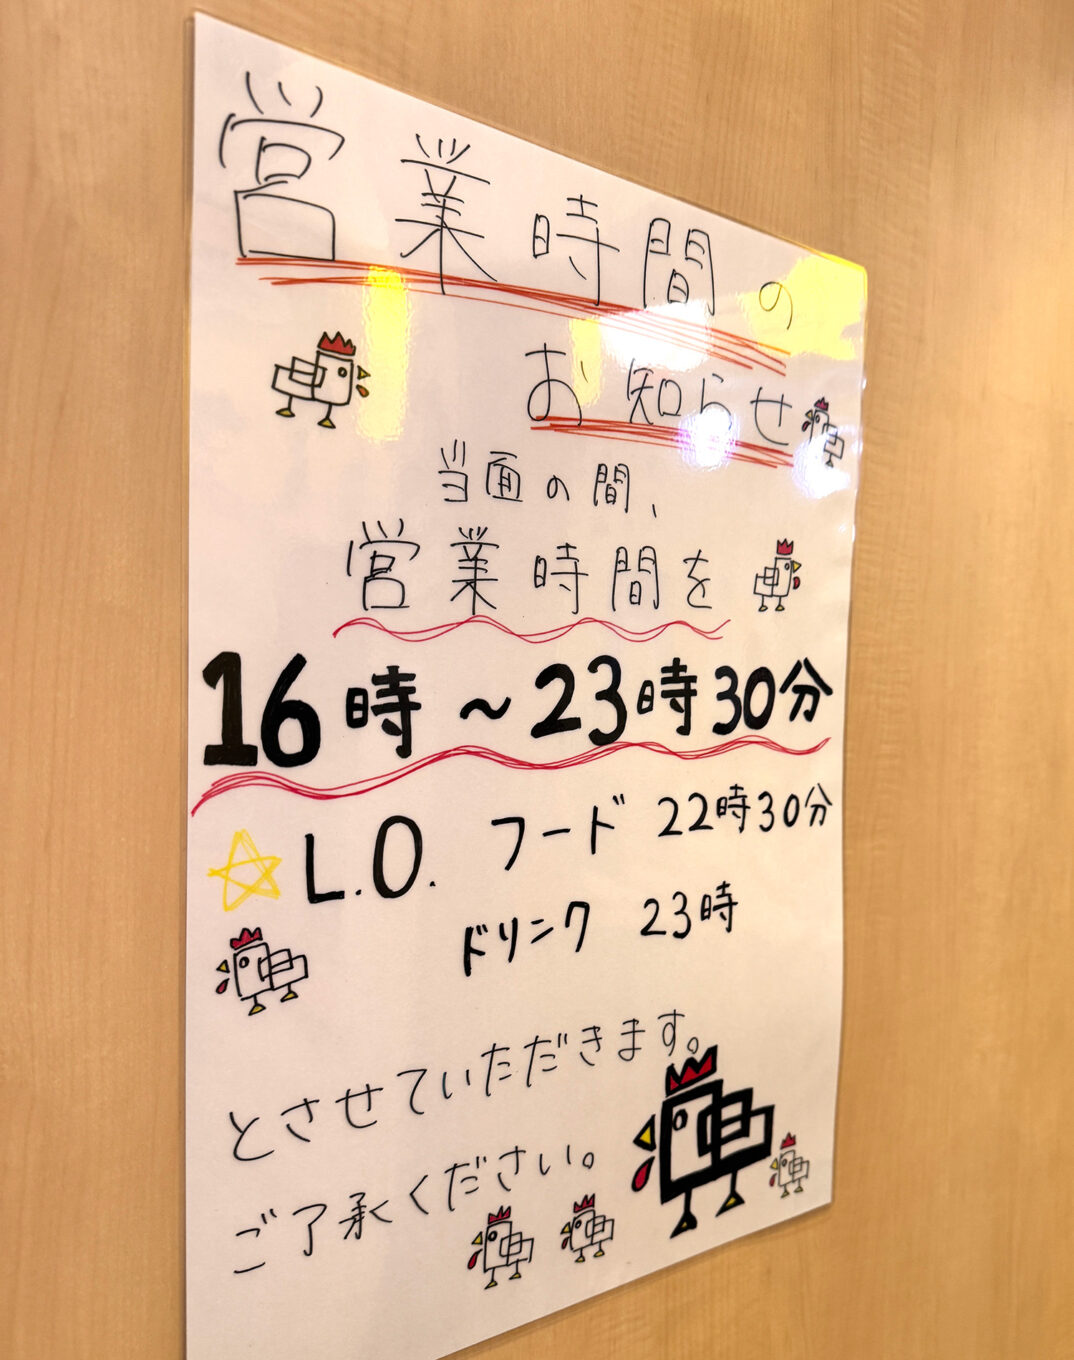 営業時間の
お知らせ
当面の間、
営業時間を
16時～23時30分
L.O. フード 22時30分
ドリンク 23時
とさせていただきます。
ご了承ください。